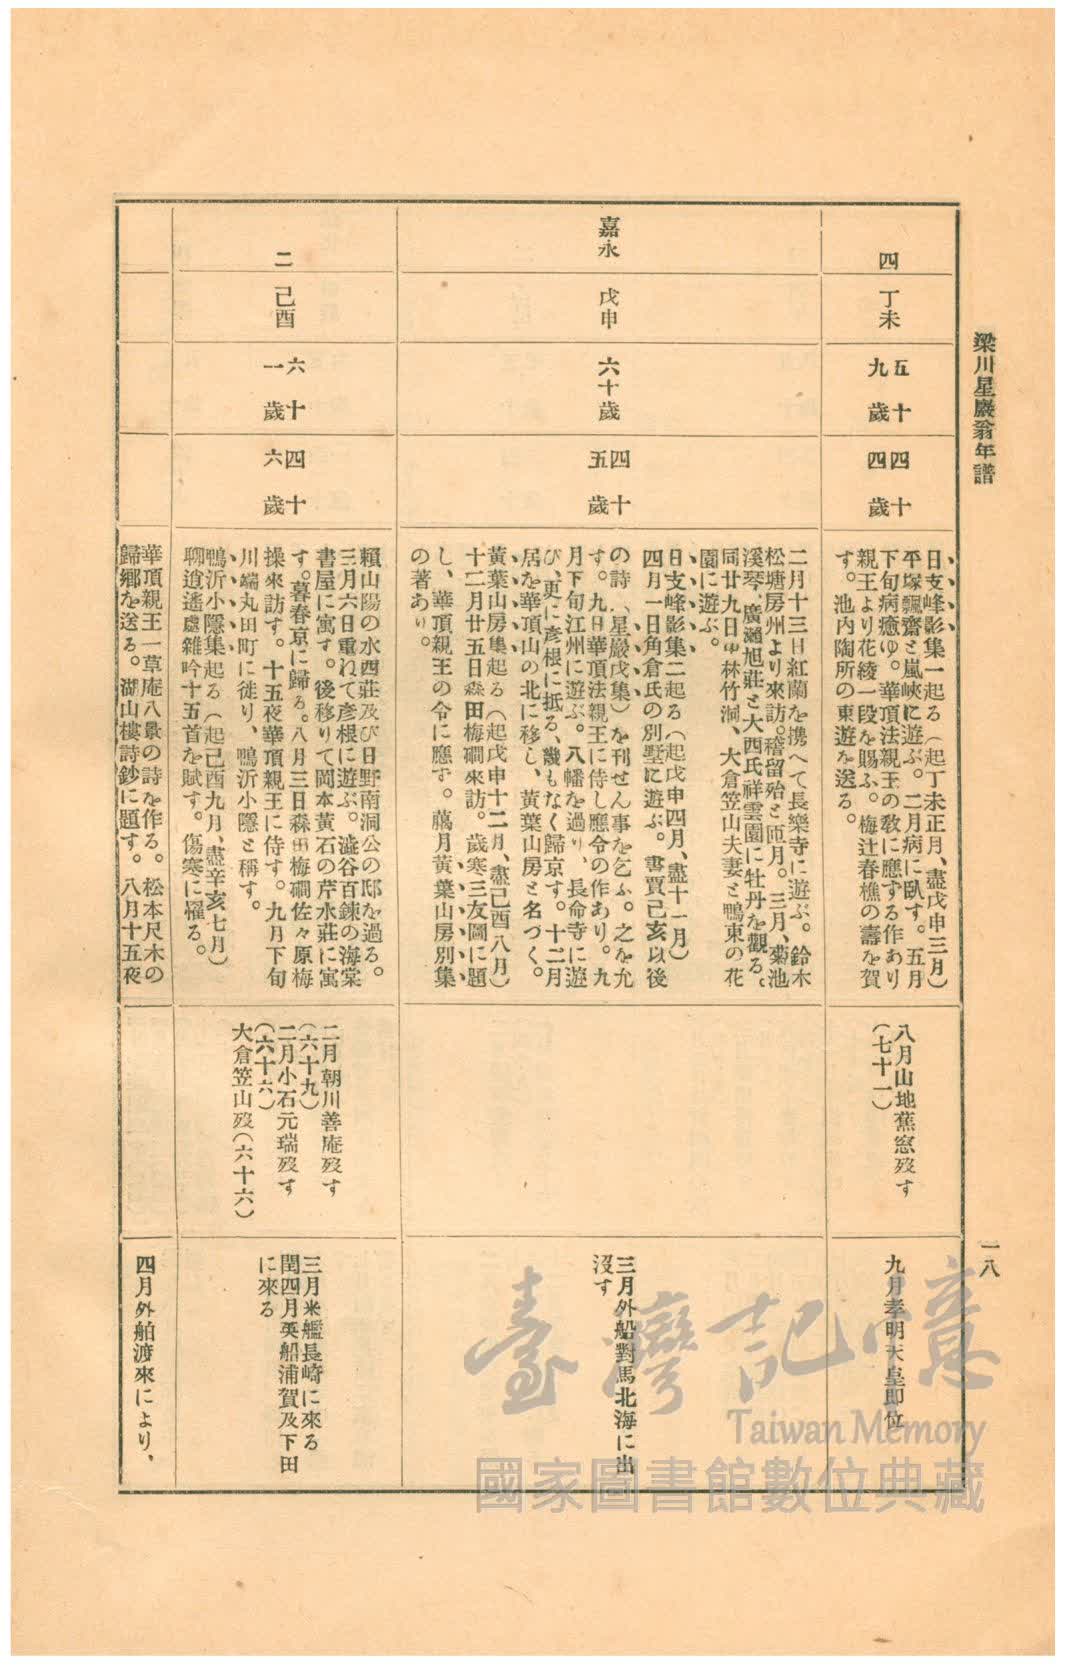 梁川星巖翁年譜
一八
四
丁未
五十
九歲
四十
四歲
日支峰影集一起る（起丁未正月、盡戊申三月）
平塚飄齋と嵐峽に遊ぶ。二月病に臥す。五月
下旬病癒ゆ。華頂法親王の敎に應ずる作あり
親王より花綾一段を賜ふ。梅辻春樵の壽を賀
す。池内陶所の東遊を送る。
八月山地蕉窓歿す
（七十一）
九月孝明天皇卽位
嘉永
戊申
六十歲
四十
五歲
二月十三日紅蘭を携へて長樂寺に遊ぶ。鈴木
松塘房州より來訪。稽留殆と匝月。三月、菊池
溪琴、廣瀨旭莊と大西氏祥雲園に牡丹を觀る。
同廿九日中林竹洞、大倉笠山夫妻と鴨東の花
園に遊ぶ。
日支峰影集二起る（起戊申四月、盡十一月）
四月一日角倉氏の別墅に遊ぶ。書賈己亥以後
の詩（星巖戊集）を刊せん事を乞ふ。之を允
す。九日華頂法親王に侍し應令の作あり。九
月下旬江州に遊ぶ。八幡を過り、長命寺に遊
び、更に彥根に抵る、幾もなく歸京す。十二月
居を華頂山の北に移し、黃葉山房と名づく。
黃葉山房集起る（起戊申十二月、盡己酉八月）
十二月廿五日森田梅磵來訪。歲寒三友圖に題
し、華頂親王の令に應ず。臈月黃葉山房別集
の著あり。
三月外船對馬北海に出
沒す
二
己酉
六十
一歲
四十
六歲
賴山陽の水西莊及び日野南洞公の邸を過る。
三月六日重ねて彥根に遊ぶ。澁谷百鍊の海棠
書屋に寓す。後移りて岡本黃石の芹水莊に寓
す。暮春京に歸る。八月三日森田梅磵佐々原梅
操來訪す。十五夜華頂親王に侍す。九月下旬
川端丸田町に徙り、鴨沂小隱と稱す。
鴨沂小隱集起る（起己酉九月、盡辛亥七月）
聊逍遙處雜吟十五首を賦す。傷寒に罹る。
二月朝川善庵歿す
（六十九）
二月小石元瑞歿す
（六十六）
大倉笠山歿（六十六）
三月米艦長崎に來る
閏四月英船浦賀及下田
に來る
華頂親王一草庵八景の詩を作る。松本尺木の
歸鄕を送る。湖山樓詩鈔に題す。八月十五夜
四月外舶渡來により、
臺灣記憶
Taiwan Memory
國家圖書館數位典藏